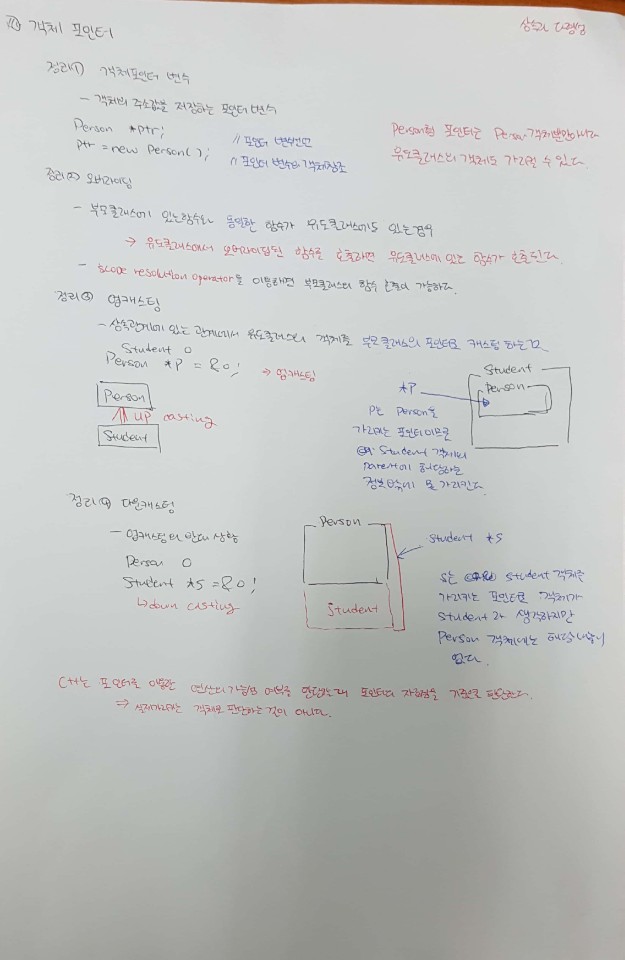 객체 포인터
상속과 다형성
정리① 객체포인터 변수
- 객체의 주소값을 저장하는 포인터 변수
Person *ptr; // 포인터 변수선언
ptr = new Person(); // 포인터 변수의 객체참조
Person형 포인터는 Person 객체뿐만아니라
유도클래스의 객체도 가리킬 수 있다.
정리② 오버라이딩
- 부모클래스에 있는함수와 동일한 함수가 유도클래스에도 있는경우
→ 유도클래스에서 오버라이딩된 함수를 호출하면 유도클래스에 있는 함수가 호출된다.
- Scope resolution operator을 이용하면 부모클래스의 함수 호출이 가능하다.
정리③ 업캐스팅
- 상속관계에 있는 관계에서 유도클래스의 객체를 부모클래스의 포인터로 캐스팅 하는것.
Student O
Person *P = &O; → 업캐스팅
Person
up casting
Student
Student
Person
*P
P는 Person을
가리키는 포인터이므로
Student 객체의
parent에 해당하는
정보밖에 못 가리킨다.
정리④ 다운캐스팅
- 업캐스팅의 반대 상황
Person O
Student *S = &O;
↳ down casting
Person
Student
Student *S
S는 Student 객체를
가리키는 포인터로 객체가
Student 라 생각하지만
Person 객체에는 해당내용이
없다.
C++는 포인터를 이용한 연산의 가능성 여부를 판단할때 포인터의 자료형을 기준으로 판단한다.
⇒ 실제가리키는 객체로 판단하는 것이 아니다.